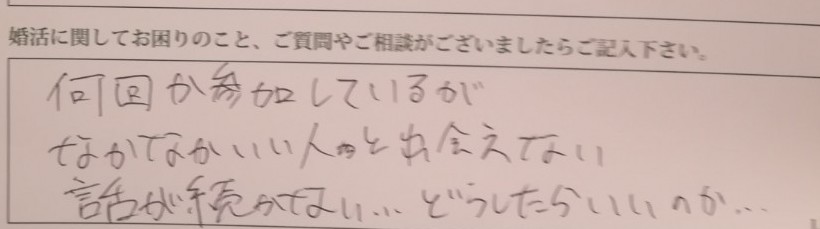 婚活に関してお困りのこと、ご質問やご相談がございましたらご記入下さい。
何回か参加しているが
なかなかいい人と出会えない
話が続かない… どうしたらいいのか…